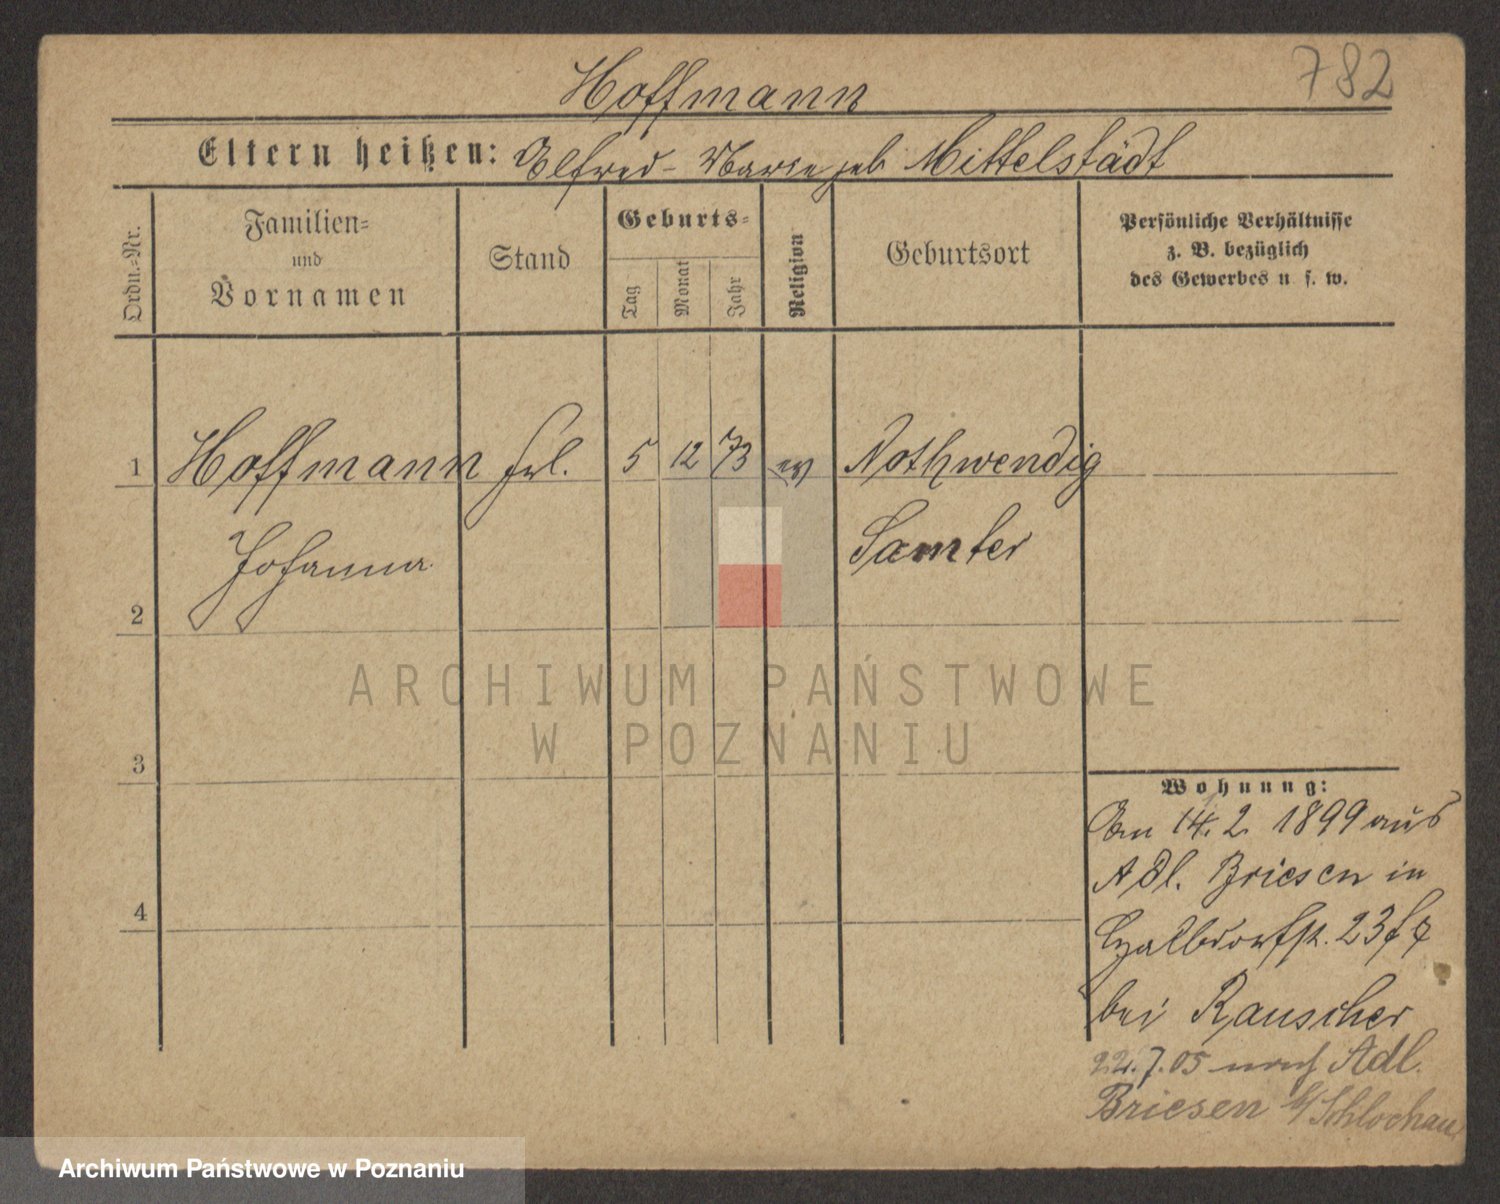 782
Hoffmann
Eltern heißen: Alfred - Marie geb Mittelstädt
Ordn.-Nr.
Familien-
und
Vornamen
Stand
Geburts-
Tag
Monat
Jahr
Religion
Geburtsort
Persönliche Verhältnisse
z. B. bezüglich
des Gewerbes u s. w.
1 Hoffmann Frl. 5 12 73 ev Nothwendig
Johanna Samter
2
3
4
Wohnung:
Am 14. 2. 1899 aus
Adl. Briesen in
23
bei Rauscher
22.7.05 nach Adl.
Briesen b/Schlochau
ARCHIWUM PAŃSTWOWE
W POZNANIU
Archiwum Państwowe w Poznaniu